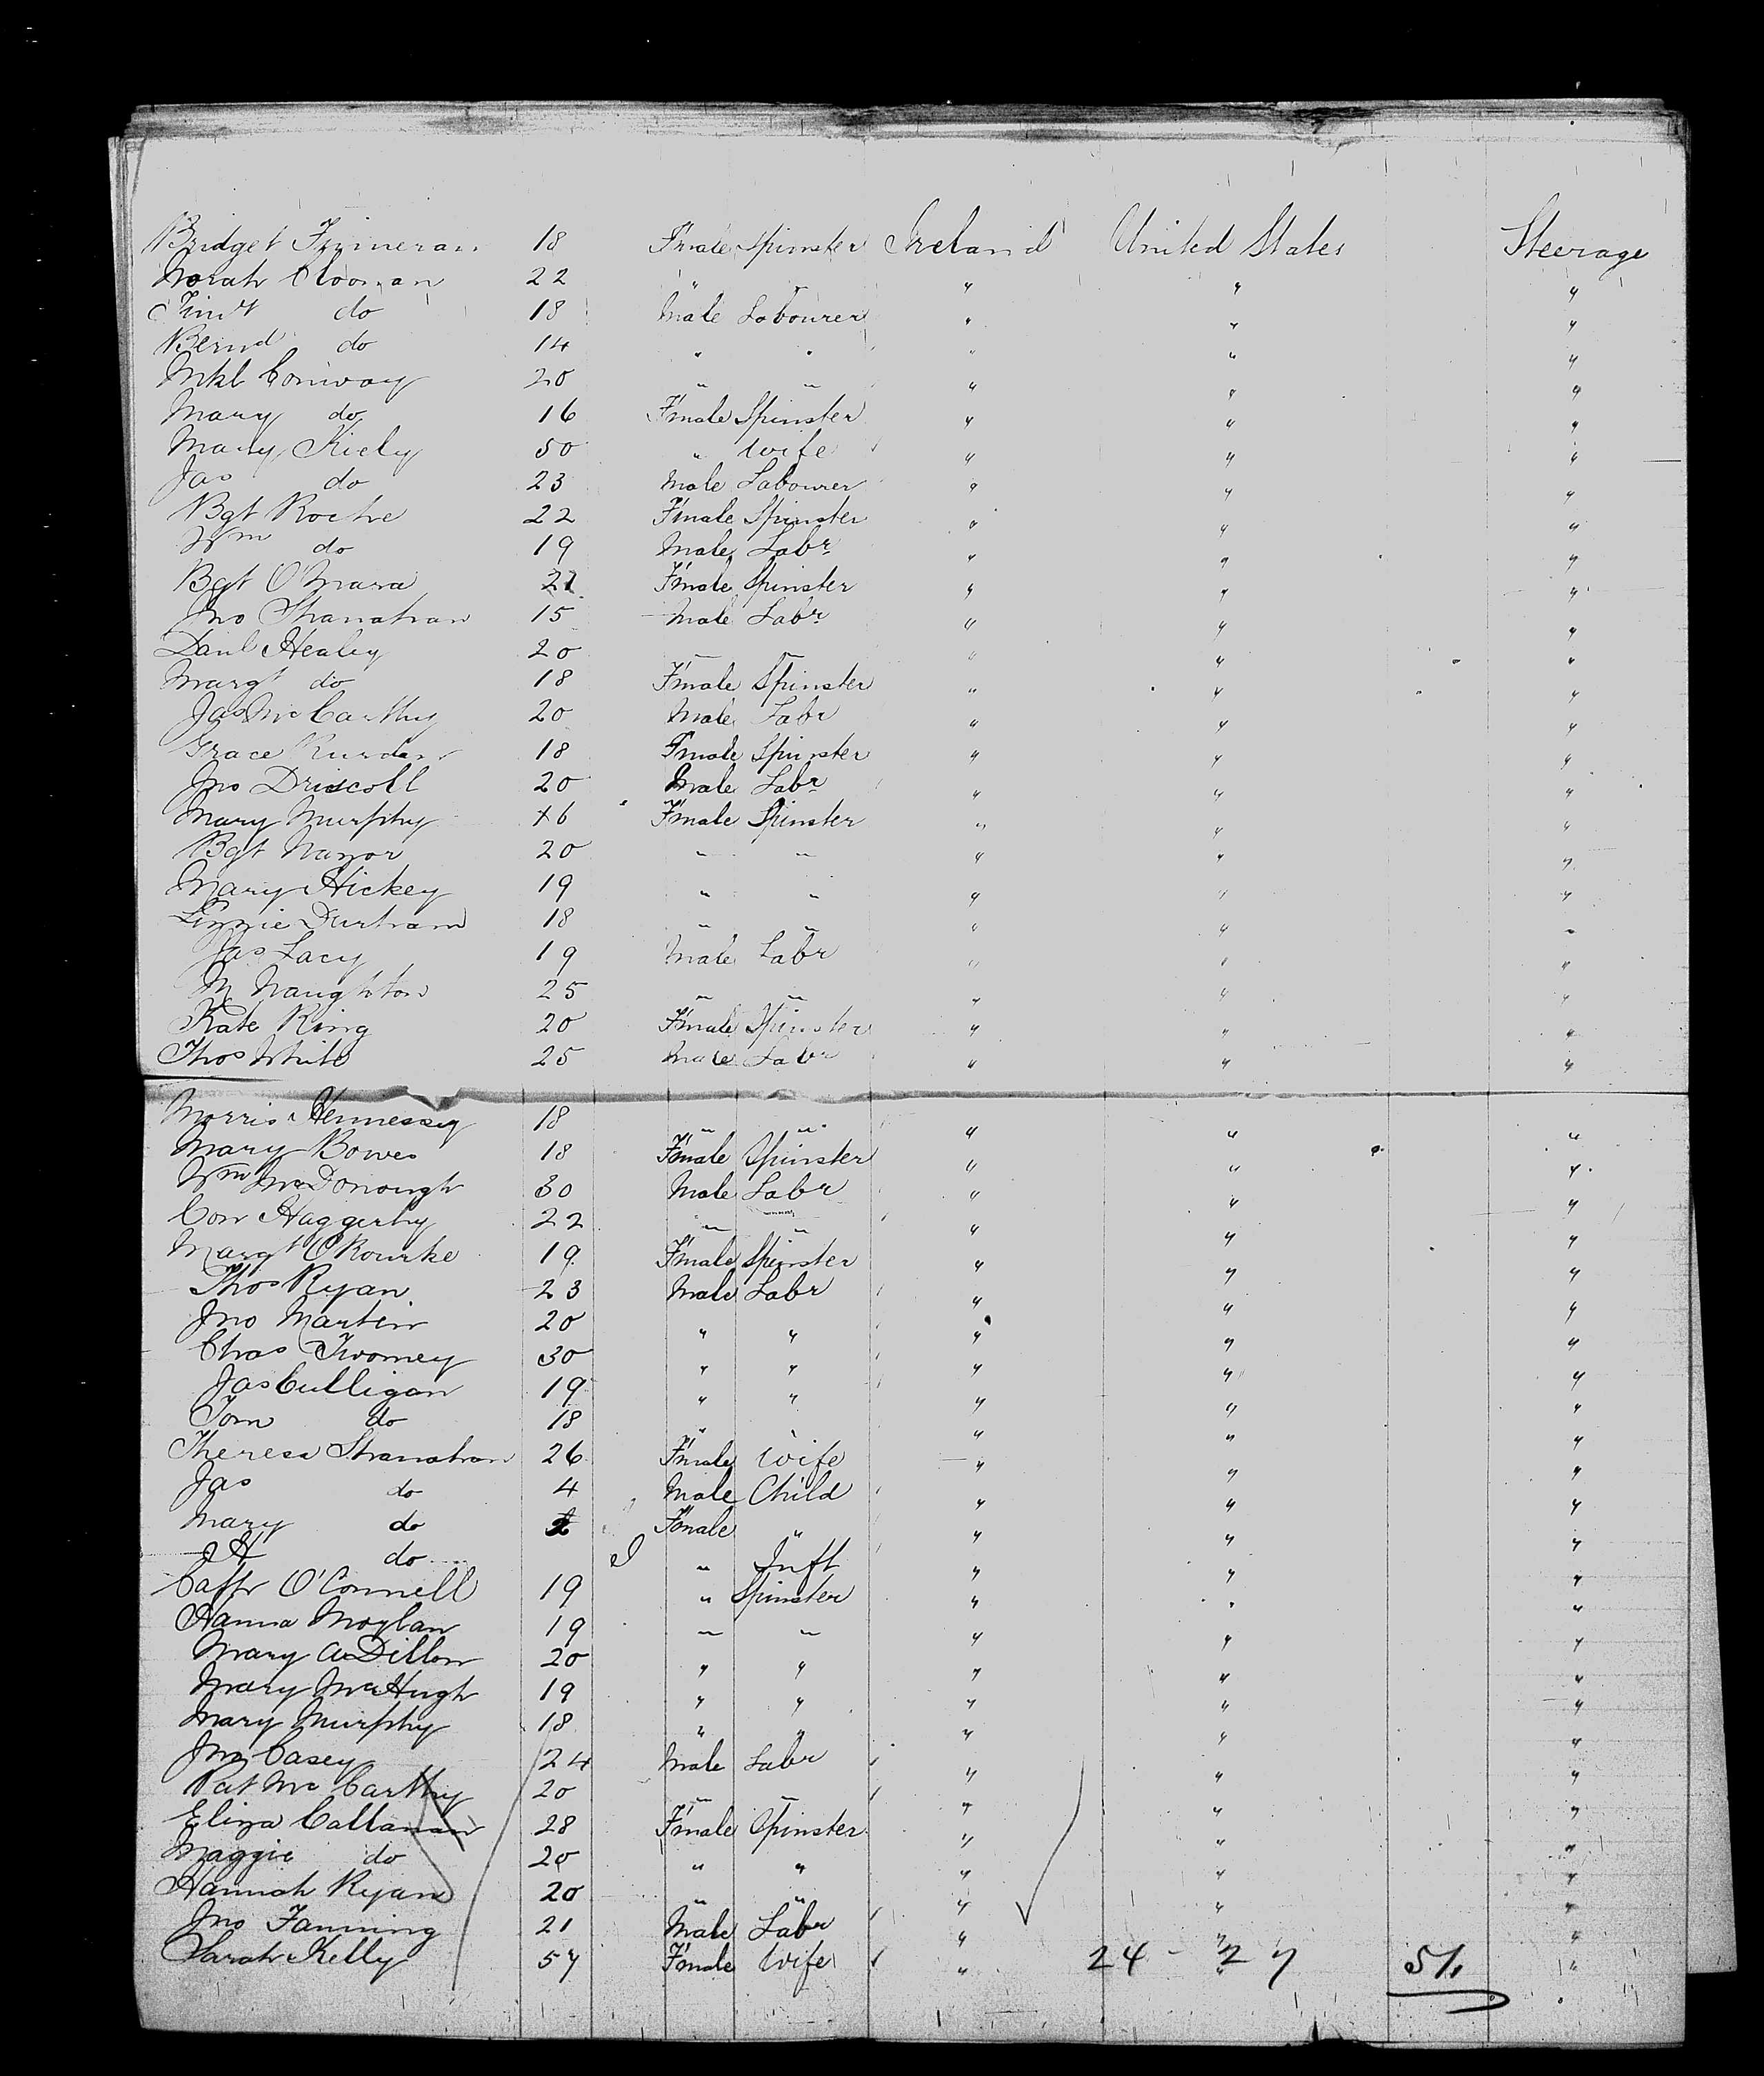 Bridget Finneran 18 Fmale Spinster Ireland United States Steerage
Norah Cloonan 22 " " " " "
Timt do 18 Male Labourer " " "
Bernd do 14 " " " " "
Mkl Conway 20 " " " " "
Mary do 16 Fmale Spinster " " "
Mary Kiely 50 " Wife " " "
Jas do 23 Male Labourer " " "
Bgt Roche 22 Fmale Spinster " " "
Wm do 19 Male Labr " " "
Bgt O'Mara Fmale Spinster " " "
Jno Shanahan 15 Male Labr " " "
Danl Healey 20 " " " " "
Margt do 18 Fmale Spinster " " "
Jas McCarthy 20 Male Labr " " "
Grace 18 Fmale Spinster " " "
Jno Driscoll 20 Male Labr " " "
Mary Murphy 16 Fmale Spinster " " "
Bgt 20 " " " " "
Mary Hickey 19 " " " " "
Lizzie Durham 18 " " " " "
Jas Lacy 19 Male Labr " " "
M Naughton 25 " " " " "
Kate King 20 Fmale Spinster " " "
Thos White 25 Male Labr " " "
Morris Hennessy 18 " " " " "
Mary Bowes 18 Fmale Spinster " " "
Wm McDonough 30 Male Labr " " "
Con Haggerty 22 " " " " "
Margt O'Rourke 19 Fmale Spinster " " "
Thos Ryan 23 Male Labr " " "
Jno Martin 20 " " " " "
Chas Twomey 30 " " " " "
Jas Culligan 19 " " " " "
Tom do 18 " " " " "
Theresa Shanahan 26 Fmale Wife " " "
Jas do 4 Male Child " " "
Mary do 2 Fmale " " " "
JH do " Inft " " "
Cath O'Connell 19 " Spinster " " "
Hanna Moylan 19 " " " " "
Mary A Dillon 20 " " " " "
Mary McHugh 19 " " " " "
Mary Murphy 18 " " " " "
Jno Casey 24 Male Labr " " "
Pat McCarthy 20 " " " " "
Eliza Callanan 28 Fmale Spinster " " "
Maggie do 20 " " " " "
Hannah Ryan 20 " " " " "
Jno Fanning 21 Male Labr " " "
Sarah Kelly 57 Fmale Wife " " "
24 - 27 51